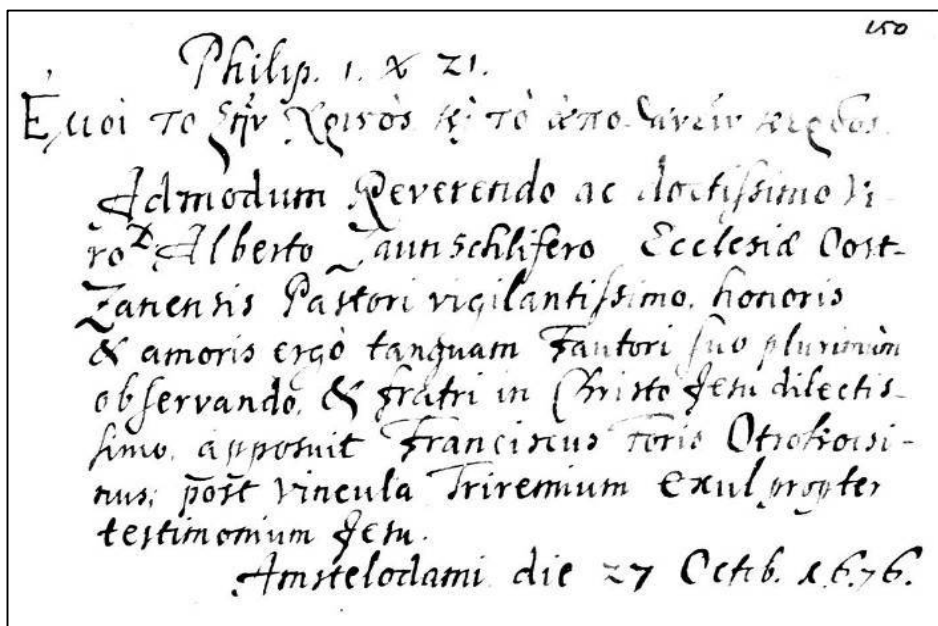 150
Philip. 1. & 21.
Ἐμοι το ζῆν Χριστὸς κ̀ τὸ ἀποθανεῖν κερδος.
Admodum Reverendo ac doctissimo Vi-
ro D. Alberto Zaunschlifero Ecclesiæ Oost-
Zanensis Pastori vigilantissimo, honoris
& amoris ergò tanquam Fautori suo plurimùm
observando, & fratri in Christo Jesu dilectis-
simo, apposuit Franciscus Foris Otrokocsi-
nus, post vincula Triremium exul propter
testimonium Jesu.
Amstelodami die 27 Octob. 1676.